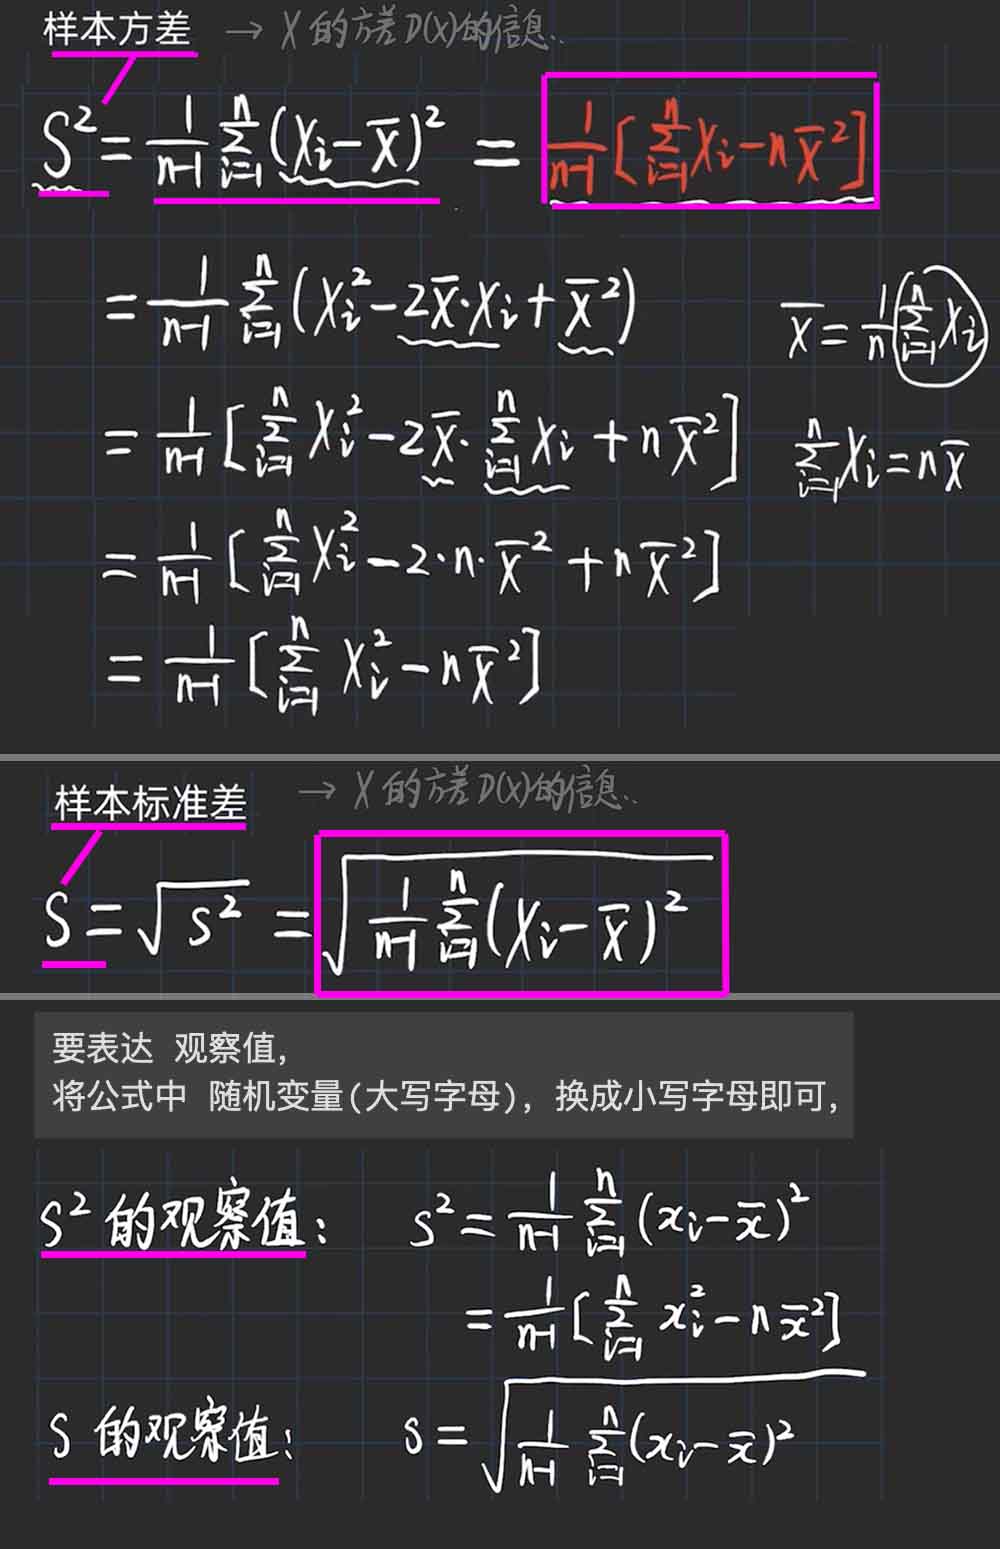 样本方差 → X 的方差 D(X)的信息..
S² = 1/(n-1) Σ_{i=1}^{n} (X_i - X̄)² = 1/(n-1) [Σ_{i=1}^{n} X_i - n X̄²]
= 1/(n-1) Σ_{i=1}^{n} (X_i² - 2X̄·X_i + X̄²) X̄ = 1/n Σ_{i=1}^{n} X_i
= 1/(n-1) [Σ_{i=1}^{n} X_i² - 2X̄· Σ_{i=1}^{n} X_i + n X̄²] Σ_{i=1}^{n} X_i = n X̄
= 1/(n-1) [Σ_{i=1}^{n} X_i² - 2·n·X̄² + n X̄²]
= 1/(n-1) [Σ_{i=1}^{n} X_i² - n X̄²]
样本标准差 → X 的方差 D(X)的信息..
S = √S² = √(1/(n-1) Σ_{i=1}^{n} (X_i - X̄)²)
要表达 观察值,
将公式中 随机变量(大写字母), 换成小写字母即可,
S² 的观察值: s² = 1/(n-1) Σ_{i=1}^{n} (x_i - x̄)²
= 1/(n-1) [Σ_{i=1}^{n} x_i² - n x̄²]
S 的观察值: s = √(1/(n-1) Σ_{i=1}^{n} (x_i - x̄)²)